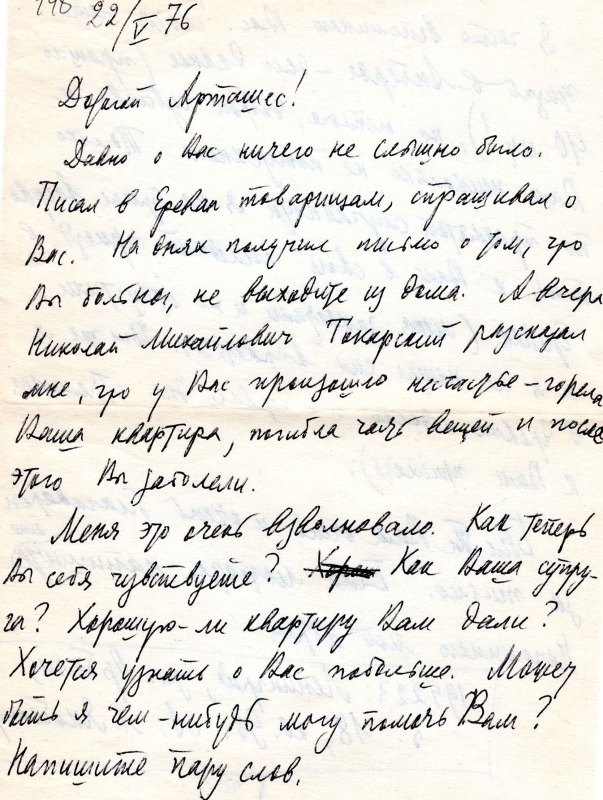 198
22/V 76
Дорогой Арташес!
Давно о Вас ничего не слышно было.
Писал в Ереван товарищам, спрашивал о
Вас. На днях получил письмо о том, что
Вы больны, не выходите из дома. А вчера
Николай Михайлович Токарский рассказал
мне, что у Вас произошло несчастье – горела
Ваша квартира, погибла часть вещей и после
этого Вы заболели.
Меня это очень взволновало. Как теперь
Вы себя чувствуете? Как Ваша супру-
га? Хорошую-ли квартиру Вам дали?
Хочется узнать о Вас побольше. Может
быть я чем-нибудь могу помочь Вам?
Напишите пару слов.